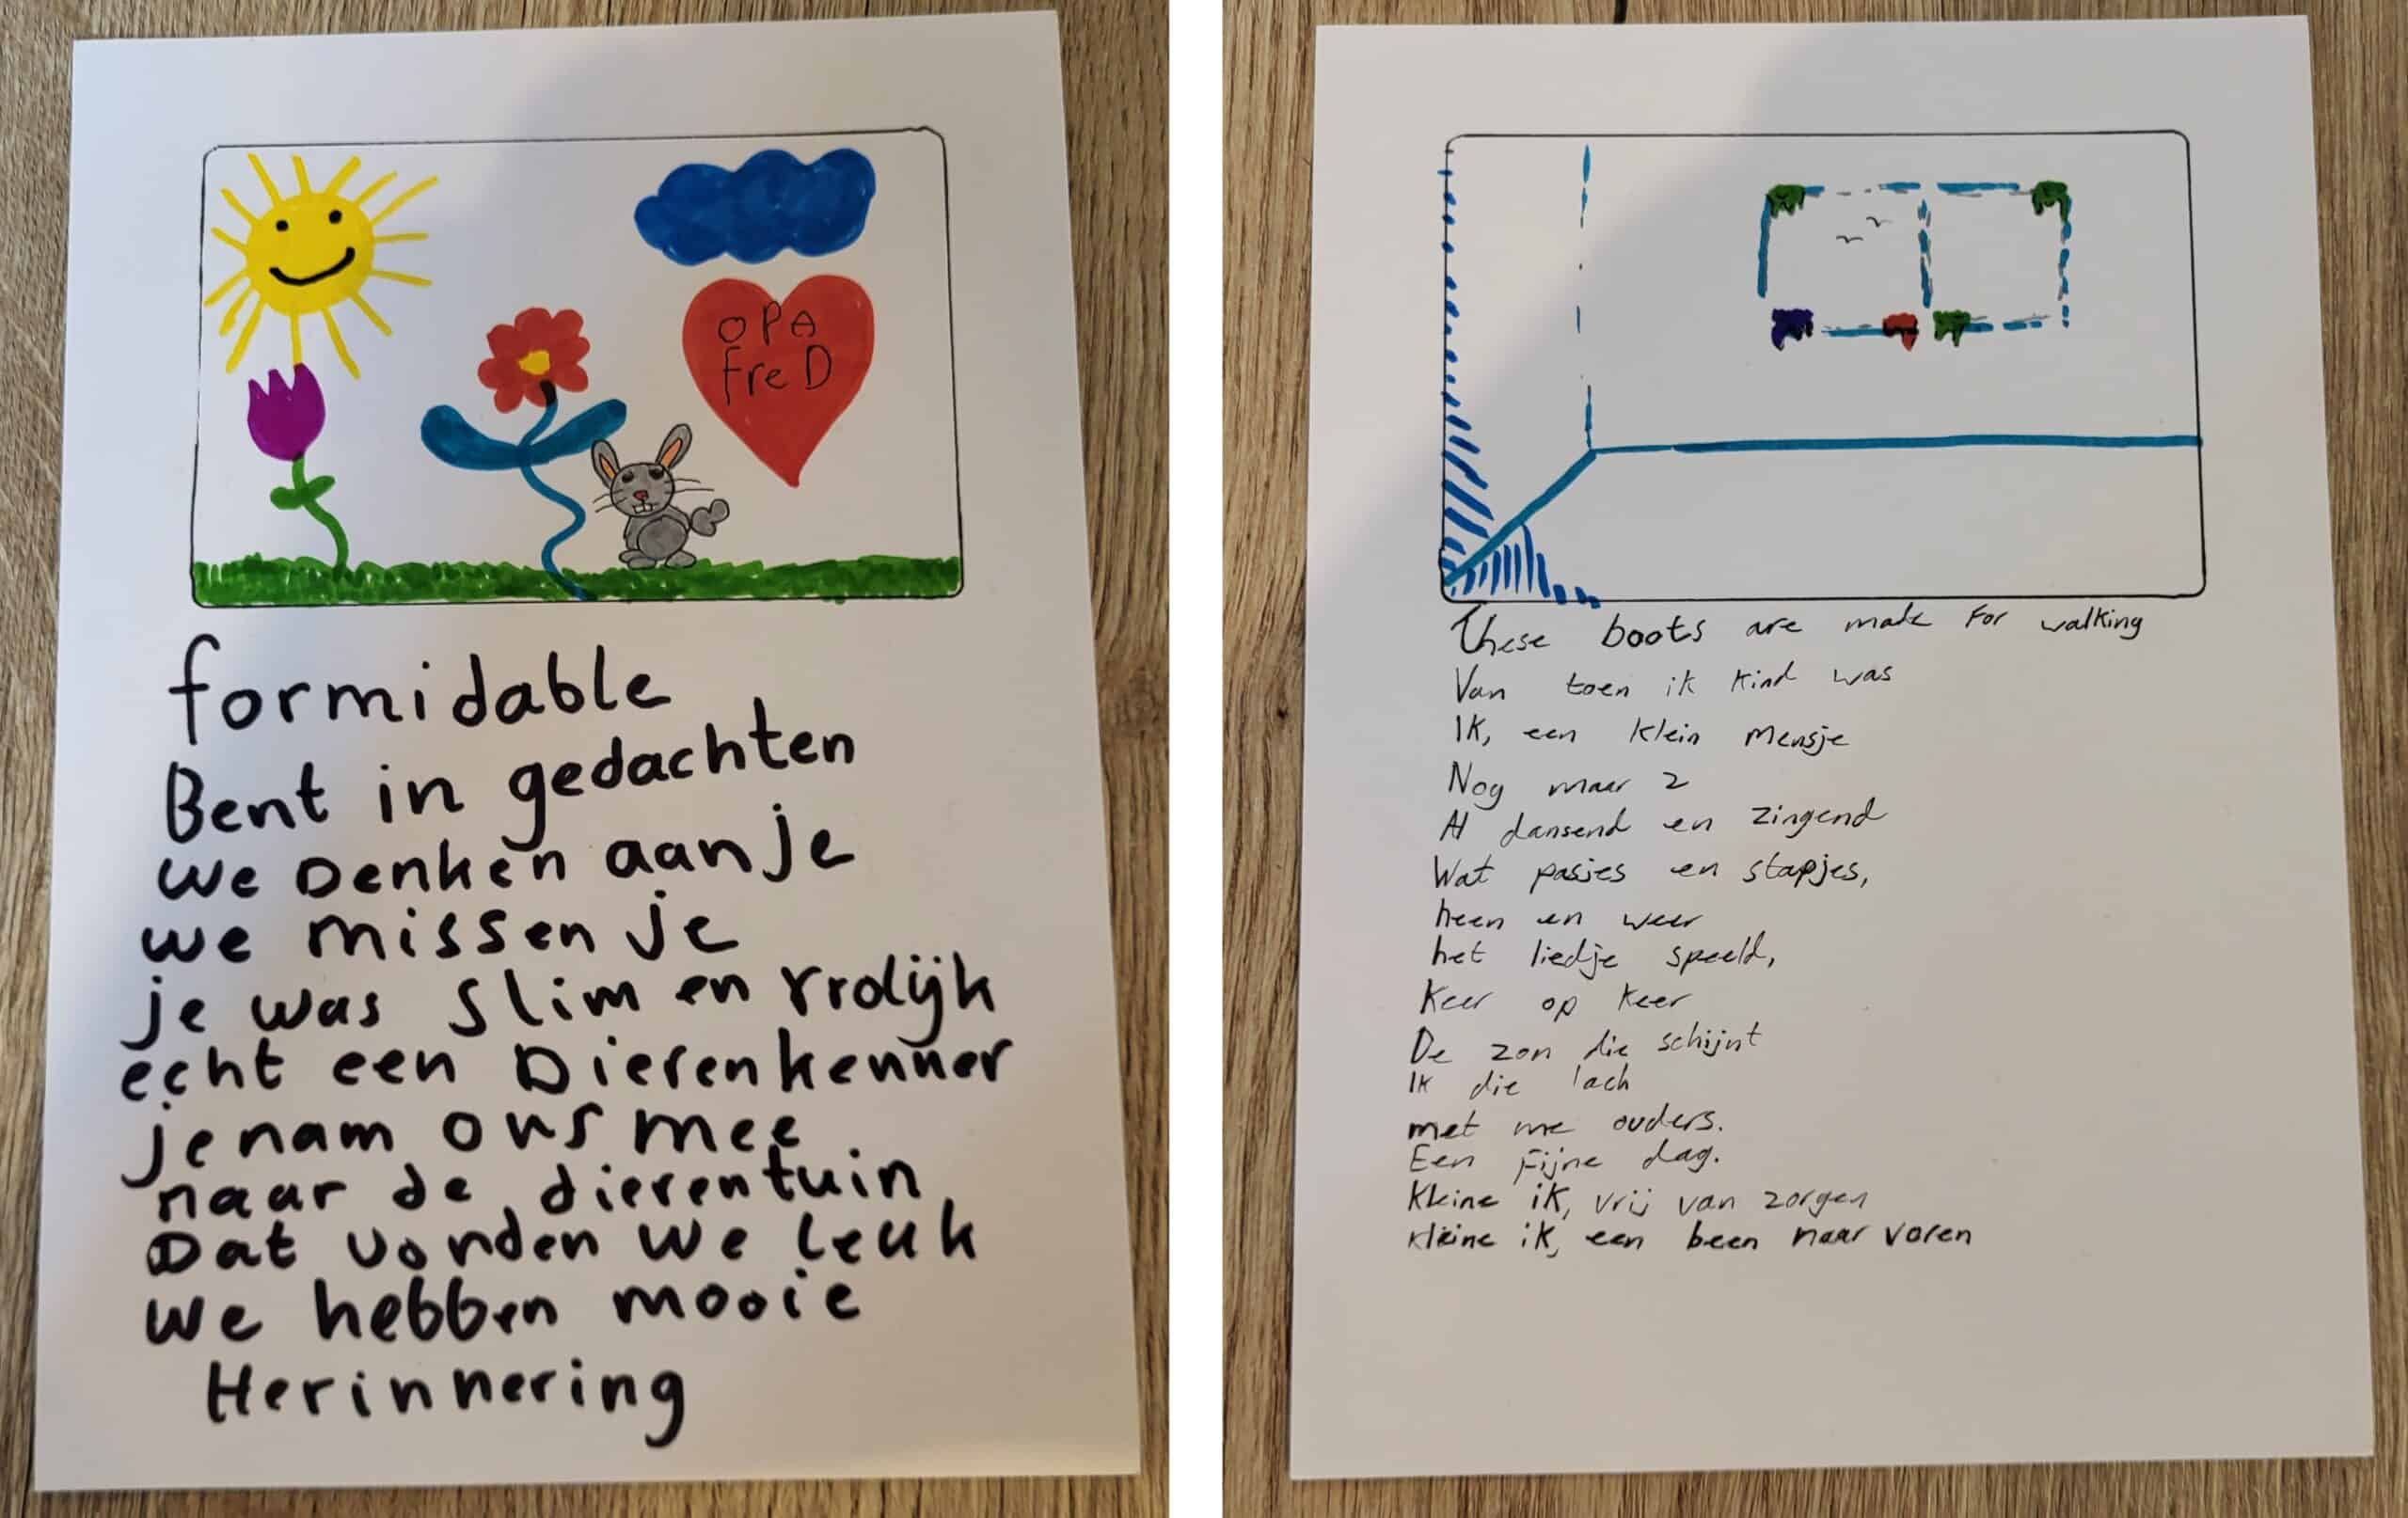 OPA
freD
formidable
Bent in gedachten
we Denken aan je
we missen je
je was slim en vrolijk
echt een Dierenkenner
je nam ons mee
naar de dierentuin
Dat vonden we leuk
we hebben mooie
Herinnering
These boots are made for walking
Van toen ik kind was
Ik, een klein mensje
Nog maar 2
Al dansend en zingend
Wat pasjes en stapjes,
heen en weer
het liedje speeld,
Keer op keer
De zon die schijnt
Ik die lach
met me ouders.
Een fijne dag.
Kleine ik, vrij van zorgen
kleine ik, een been naar voren